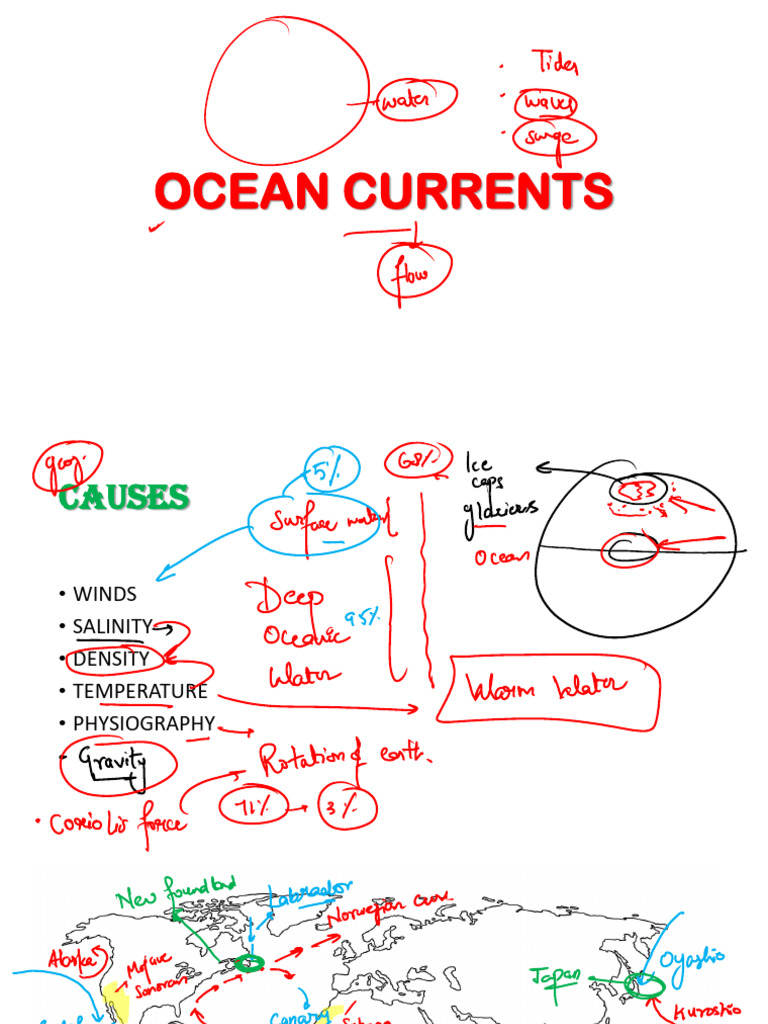 Tides
water
waves
surge
OCEAN CURRENTS
flow
geog.
CAUSES
5%
68%
Ice
caps
glaciers
Surface water
Ocean
• WINDS
• SALINITY
• DENSITY
• TEMPERATURE
• PHYSIOGRAPHY
Deep
Oceanic
95%
Water
Warm Water
• Gravity
Rotation of earth.
71%
3%
• Coriolis force
New foundland
Labrador
Norwegian
Alaska
Mojave
Sonoran
Japan
Oyashio
Canary
Kuroshio